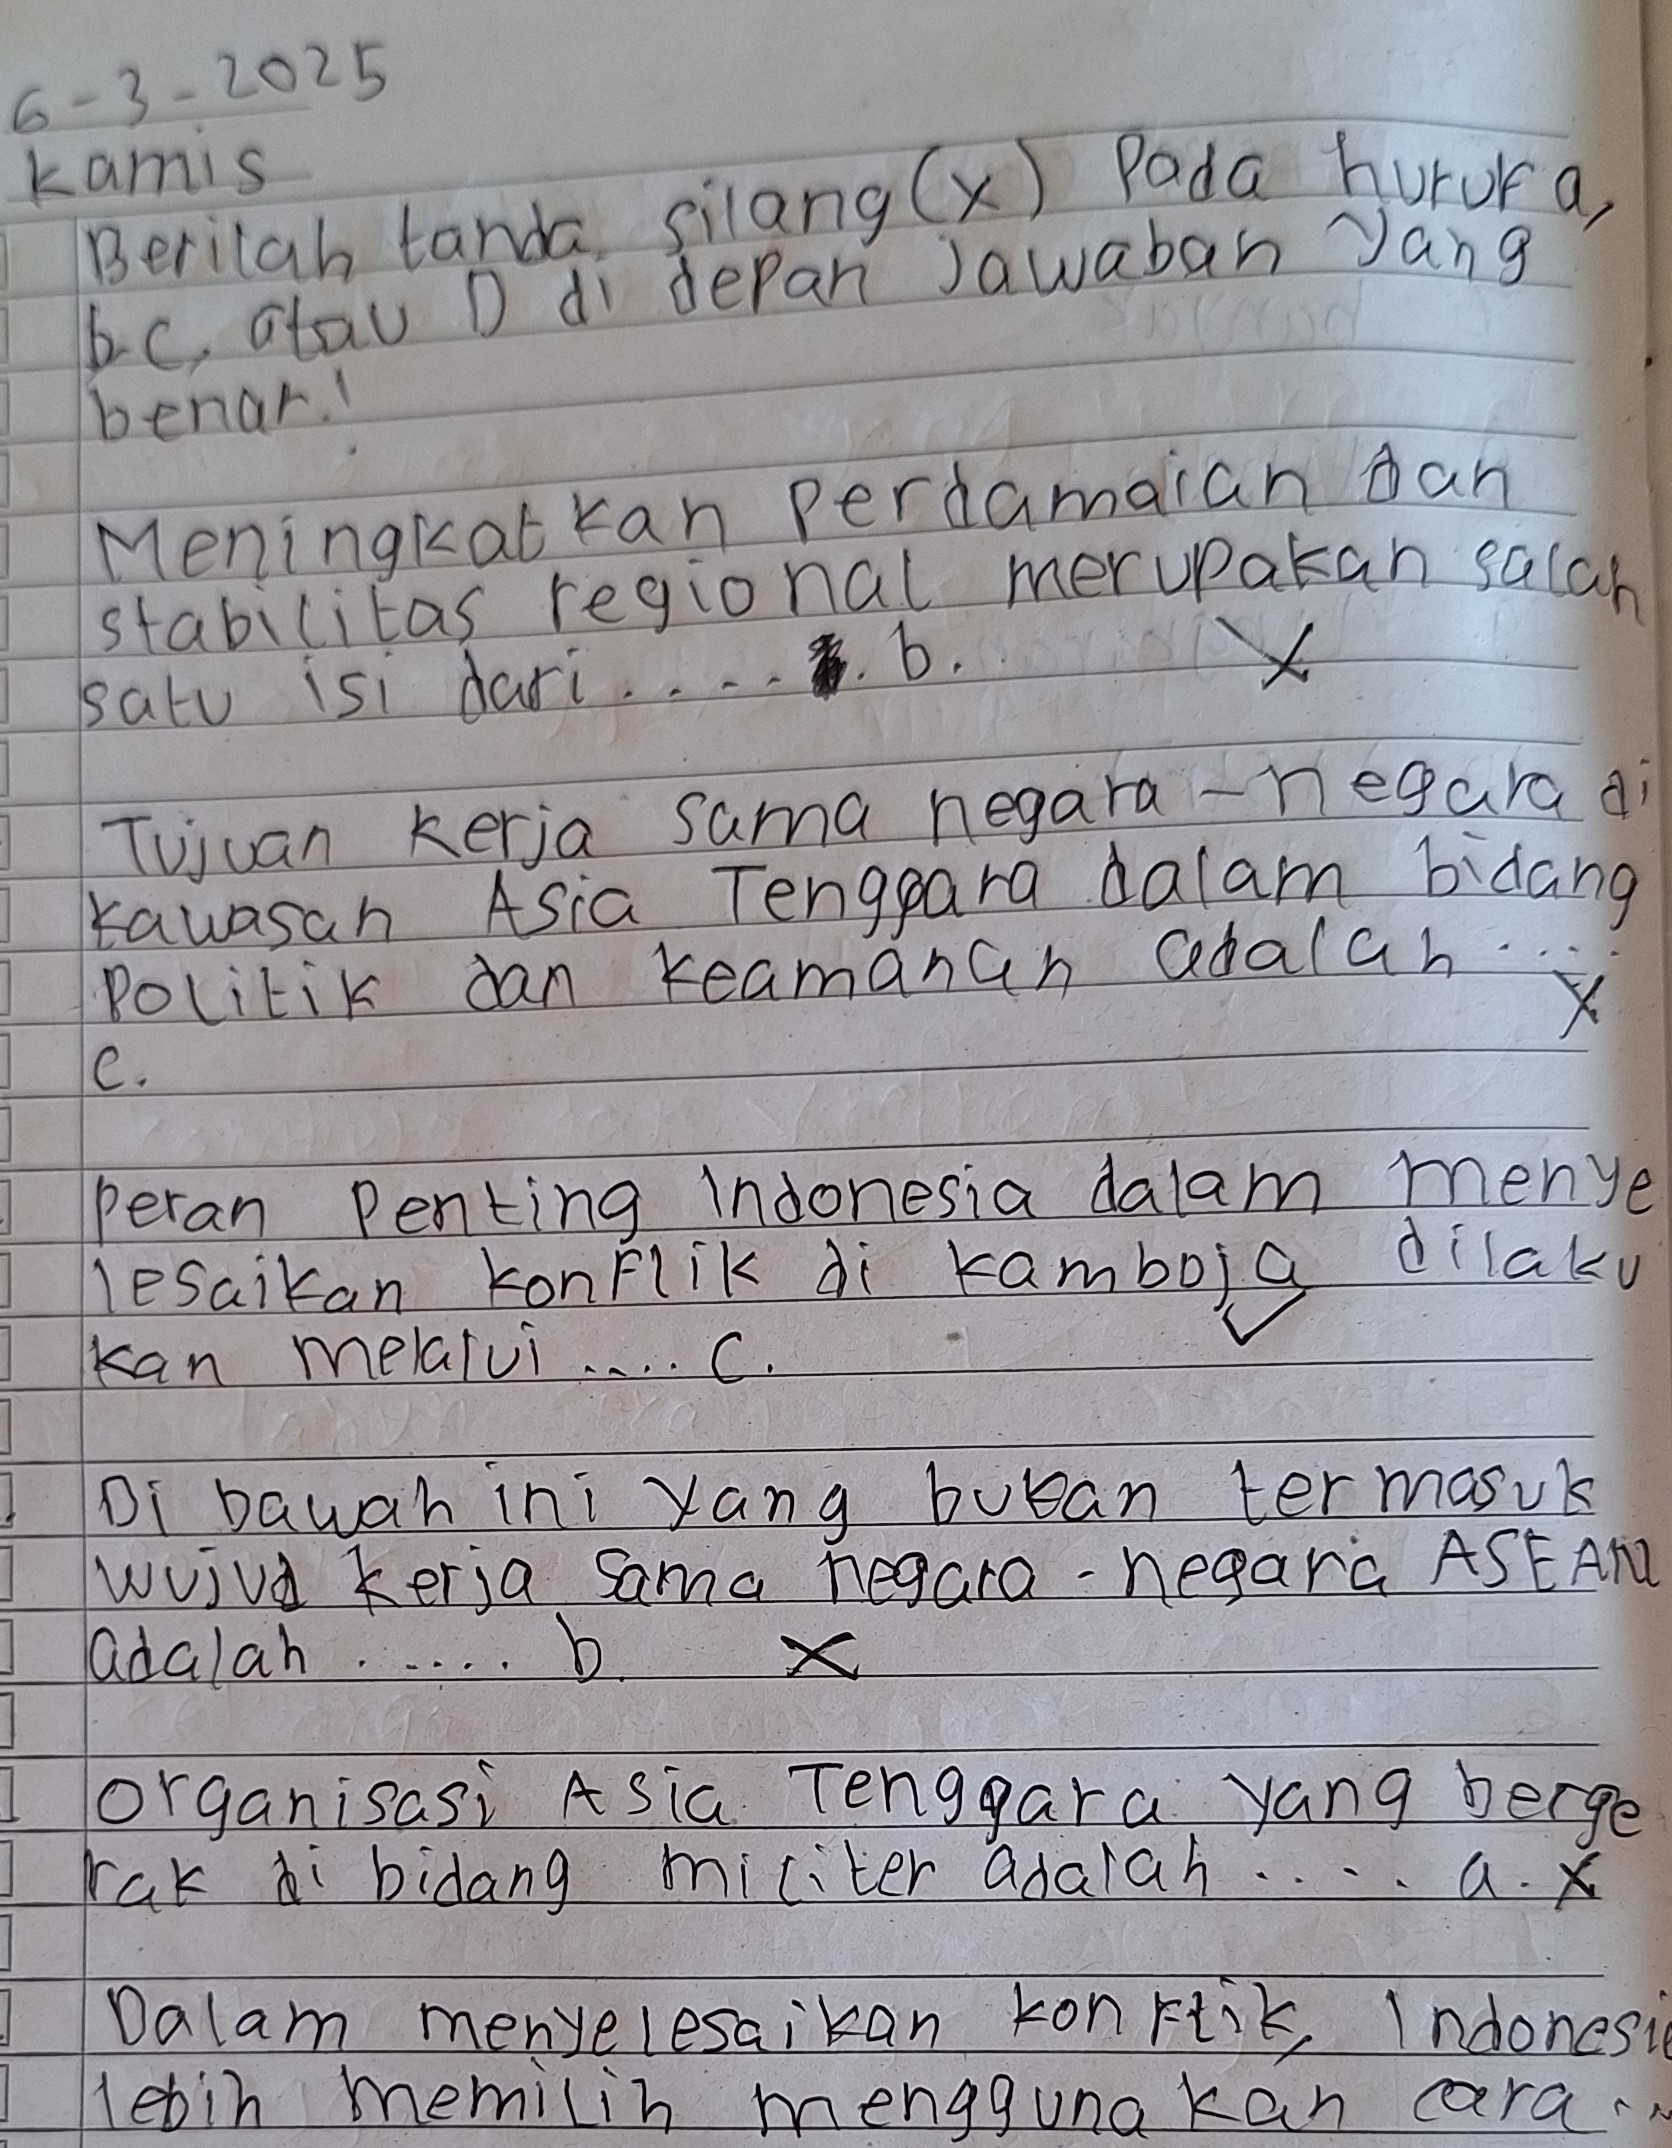 6-3-2025
Kamis
Berilah tanda silang (x) Pada huruf a,
b.c, atau D di depan jawaban yang
benar!
Meningkatkan Perdamaian dan
stabilitas regional merupakan salah
satu isi dari..... b. X
Tujuan kerja sama negara-negara di
kawasan Asia Tenggara dalam bidang
Politik dan keamanan adalah .... X
c.
Peran Penting Indonesia dalam menye
lesaikan konflik di kamboja dilaku
kan melalui .... C. ✓
Di bawah ini yang bukan termasuk
wujud kerja sama negara-negara ASEAN
adalah ...... b. X
organisasi Asia Tenggara yang berge
rak di bidang militer adalah .... a. X
Dalam menyelesaikan konflik, Indonesia
lebih memilih menggunakan cara..